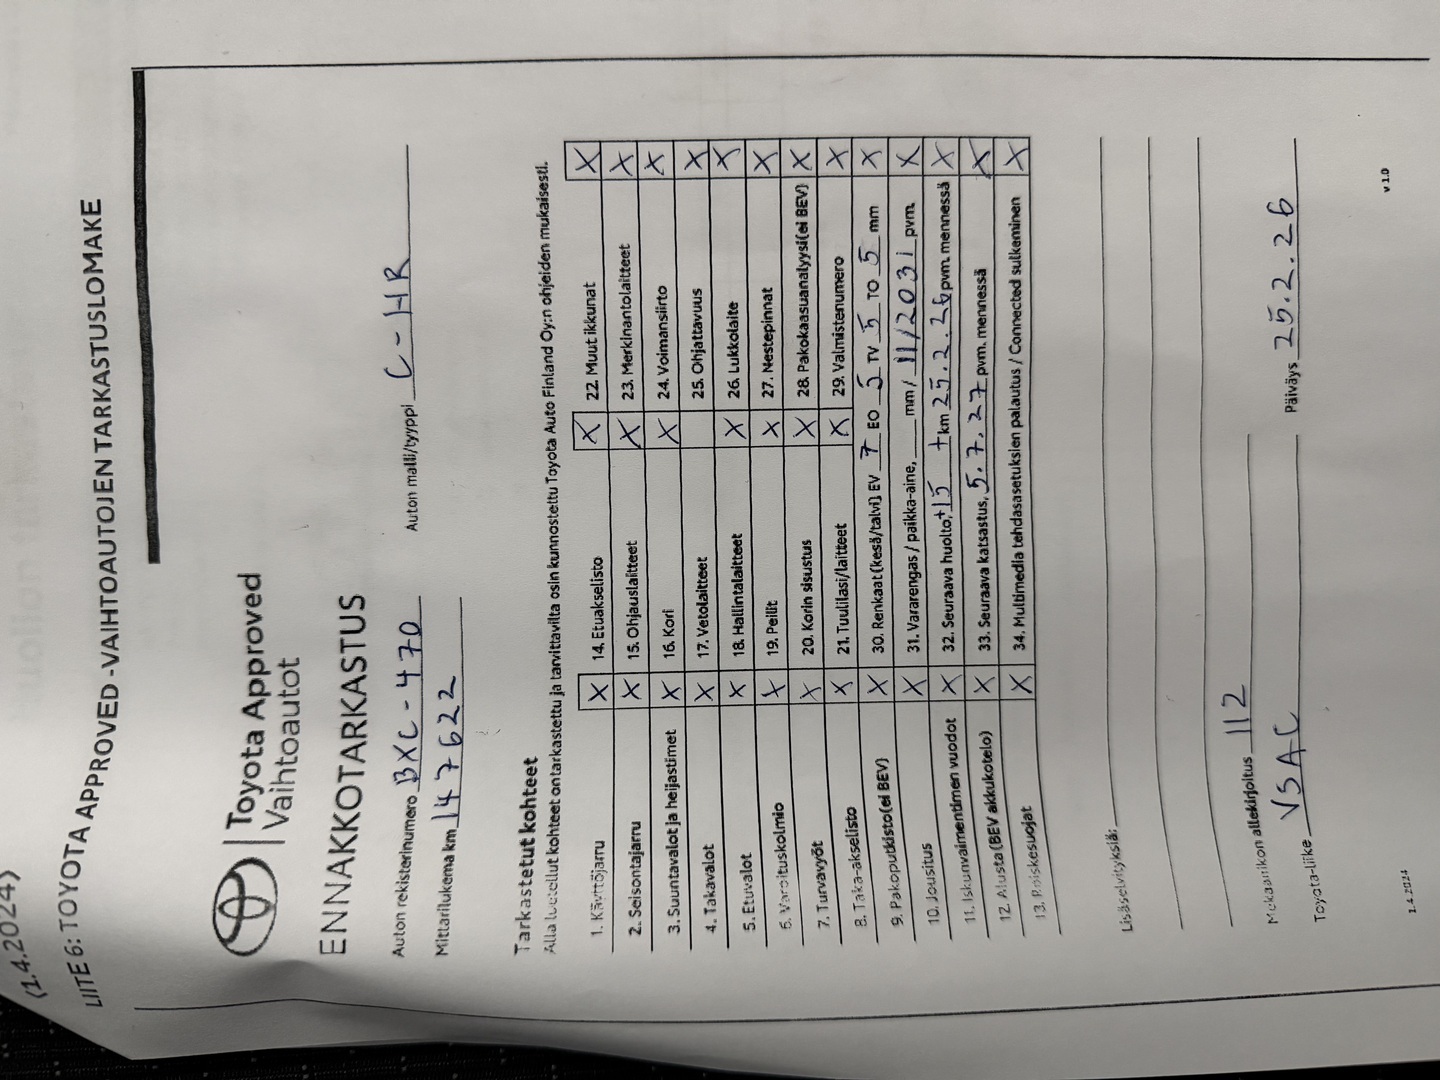 (1.4.2024)
LIITE 6: TOYOTA APPROVED -VAIHTOAUTOJEN TARKASTUSLOMAKE
Toyota Approved
Vaihtoautot
ENNAKKOTARKASTUS
Auton rekisterinumero BXC-470 Auton malli/tyyppi C-HR
Mittarilukema km 147622
Tarkastetut kohteet
Alla luetellut kohteet on tarkastettu ja tarvittavilta osin kunnostettu Toyota Auto Finland Oy:n ohjeiden mukaisesti.
1. Käyttöjarru X 14. Etuakselisto X 22. Muut ikkunat X
2. Seisontajarru X 15. Ohjauslaitteet X 23. Merkinantolaitteet X
3. Suuntavalot ja heijastimet X 16. Kori X 24. Voimansiirto X
4. Takavalot X 17. Vetolaitteet 25. Ohjattavuus X
5. Etuvalot X 18. Hallintalaitteet X 26. Lukkolaite X
6. Varoituskolmio X 19. Peilit X 27. Nestepinnat X
7. Turvavyöt X 20. Korin sisustus X 28. Pakokaasuanalyysi (ei BEV) X
8. Taka-akselisto X 21. Tuulilasi/laitteet X 29. Valmistenumero X
9. Pakoputkisto (ei BEV) X 30. Renkaat (kesä/talvi) EV 7 EO 5 TV 5 TO 5 mm X
10. Jousitus X 31. Vararengas / paikka-aine, mm / 11/2031 pvm. X
11. Iskunvaimentimen vuodot X 32. Seuraava huolto, +15 t km 25.2.26 pvm. mennessä X
12. Alusta (BEV akkukotelo) X 33. Seuraava katsastus, 5.7.27 pvm. mennessä X
13. Roiskesuojat X 34. Multimedia tehdasasetuksien palautus / Connected sulkeminen X
Lisäselvityksiä:
Mekaanikon allekirjoitus 112
Toyota-liike VSAC Päiväys 25.2.26
1.4.2024 v 1.0